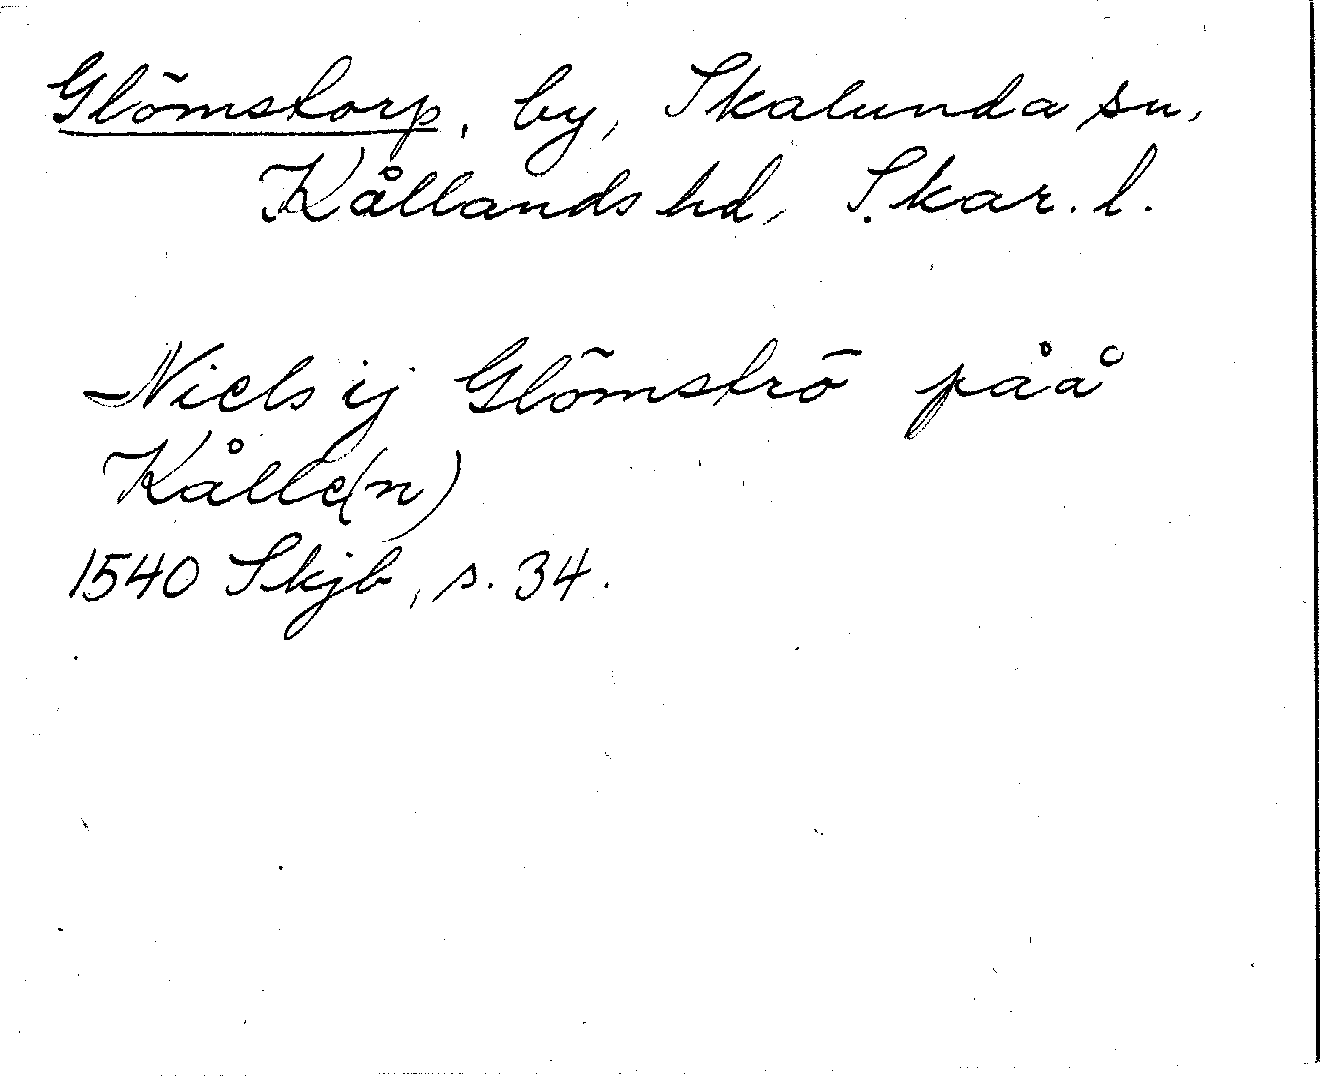 Glömstorp, by, Skalunda sn,
Kållands hd, Skar. l.
Niels ij Glömströ påå
Kålle(n)
1540 Skjb, s. 34.